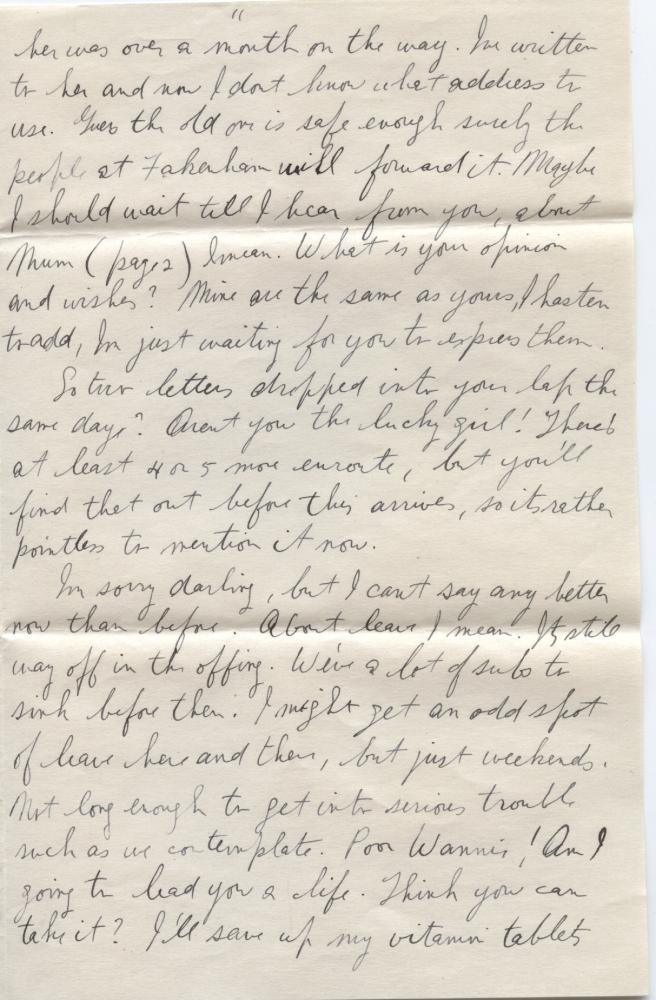 "
her was over a month on the way. I've written
to her and now I dont know what address to
use. Guess the old one is safe enough surely the
people at Fakenham will forward it. Maybe
I should wait till I hear from you, about
Mum (page 2) I mean. What is your opinion
and wishes? Mine are the same as yours, I hasten
to add, Im just waiting for you to express them.
So two letters dropped into your lap the
same day? Arent you the lucky girl! There's
at least 4 or 5 more enroute, but you'll
find that out before this arrives, so its rather
pointless to mention it now.
Im sorry darling, but I cant say any better
now than before. About leave I mean. Its still
way off in the offing. We've a lot of subs to
sink before then. I might get an odd spot
of leave here and there, but just weekends.
Not long enough to get into serious trouble
such as we contemplate. Poor Wannie! Am I
going to lead you a life. Think you can
take it? I'll save up my vitamin tablets